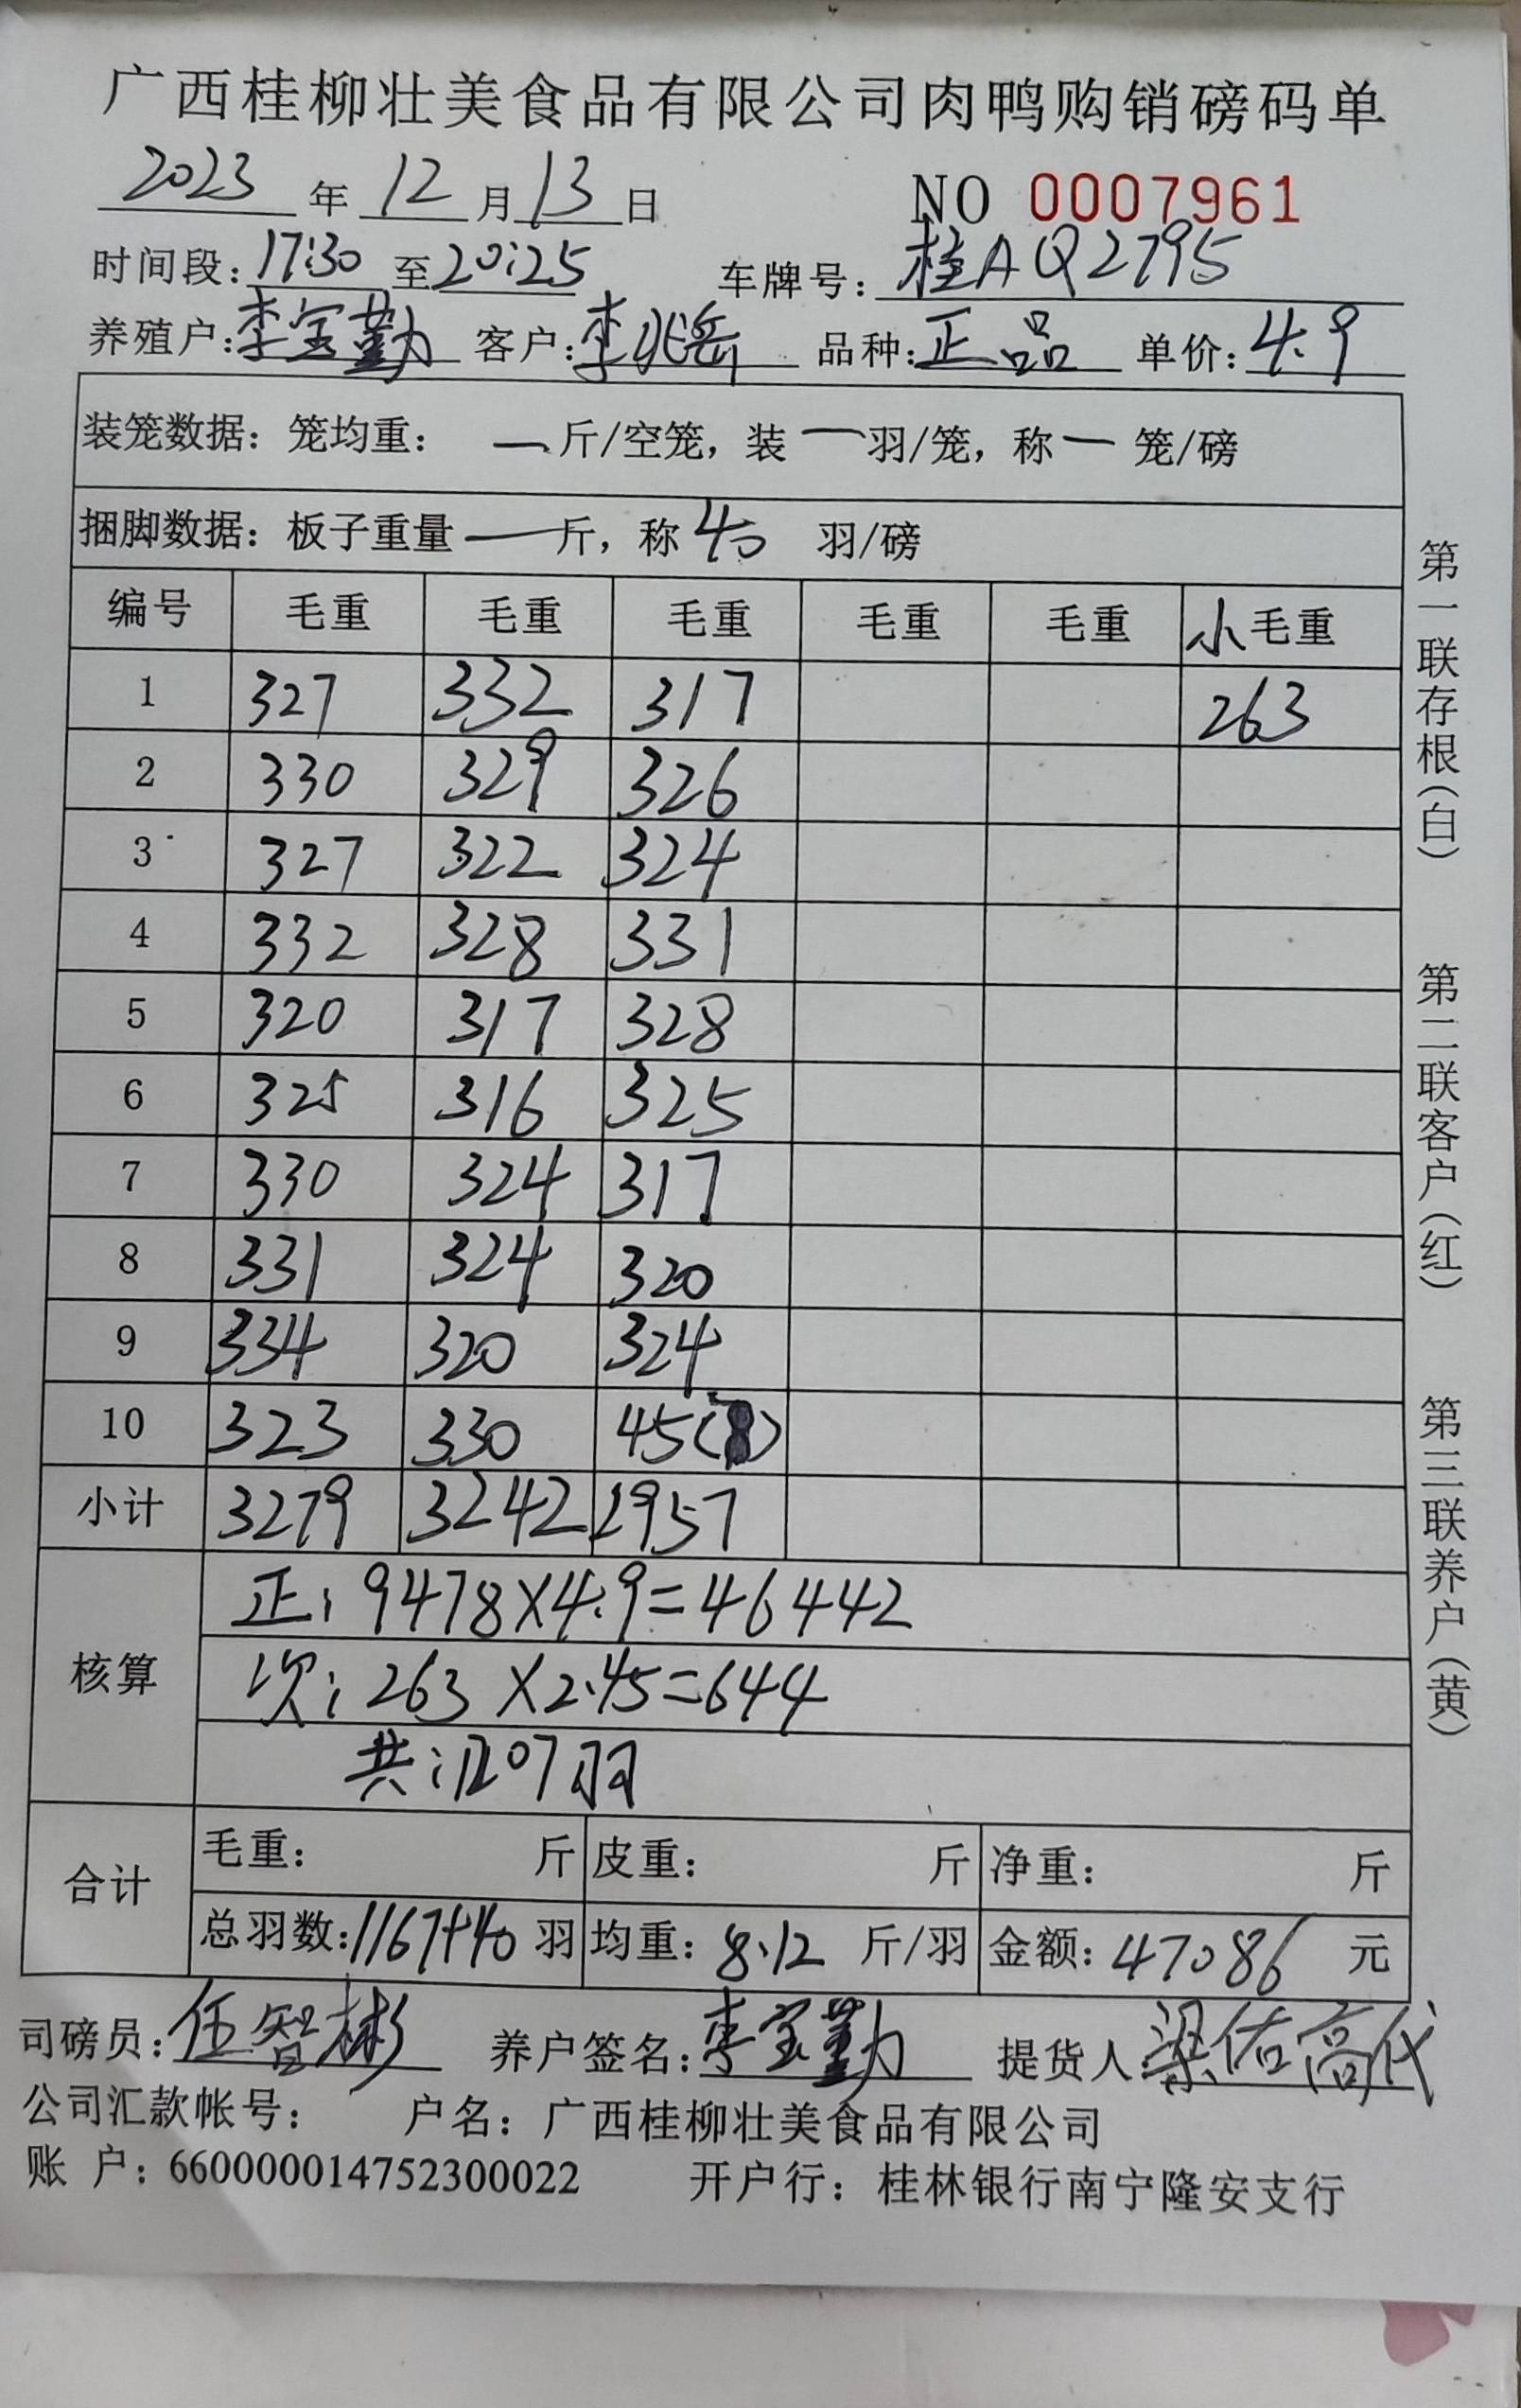 广西桂柳壮美食品有限公司肉鸭购销磅码单
2023 年 12 月 13 日 NO 0007961
时间段:17:30 至20:25 车牌号:桂AQ2795
养殖户:李宝勤 客户:李兆岳 品种:正品 单价:4.9
装笼数据: 笼均重: 一斤/空笼, 装 一羽/笼, 称一 笼/磅
捆脚数据: 板子重量 一斤, 称 40 羽/磅
编号 毛重 毛重 毛重 毛重 毛重 小毛重
1 327 332 317 263
2 330 329 326
3 327 322 324
4 332 328 331
5 320 317 328
6 325 316 325
7 330 324 317
8 331 324 320
9 334 320 324
10 323 330 45()
小计 3279 3242 2957
核算
正: 9478×4.9=46442
次: 263×2.45=644
共:1207羽
合计
毛重: 斤 皮重: 斤 净重: 斤
总羽数:1167+40 羽 均重: 8.12 斤/羽 金额: 47086 元
司磅员:伍智彬 养户签名:李宝勤 提货人梁佑高代
公司汇款帐号: 户名: 广西桂柳壮美食品有限公司
账 户: 660000014752300022 开户行: 桂林银行南宁隆安支行
第一联存根(白)
第二联客户(红)
第三联养户(黄)